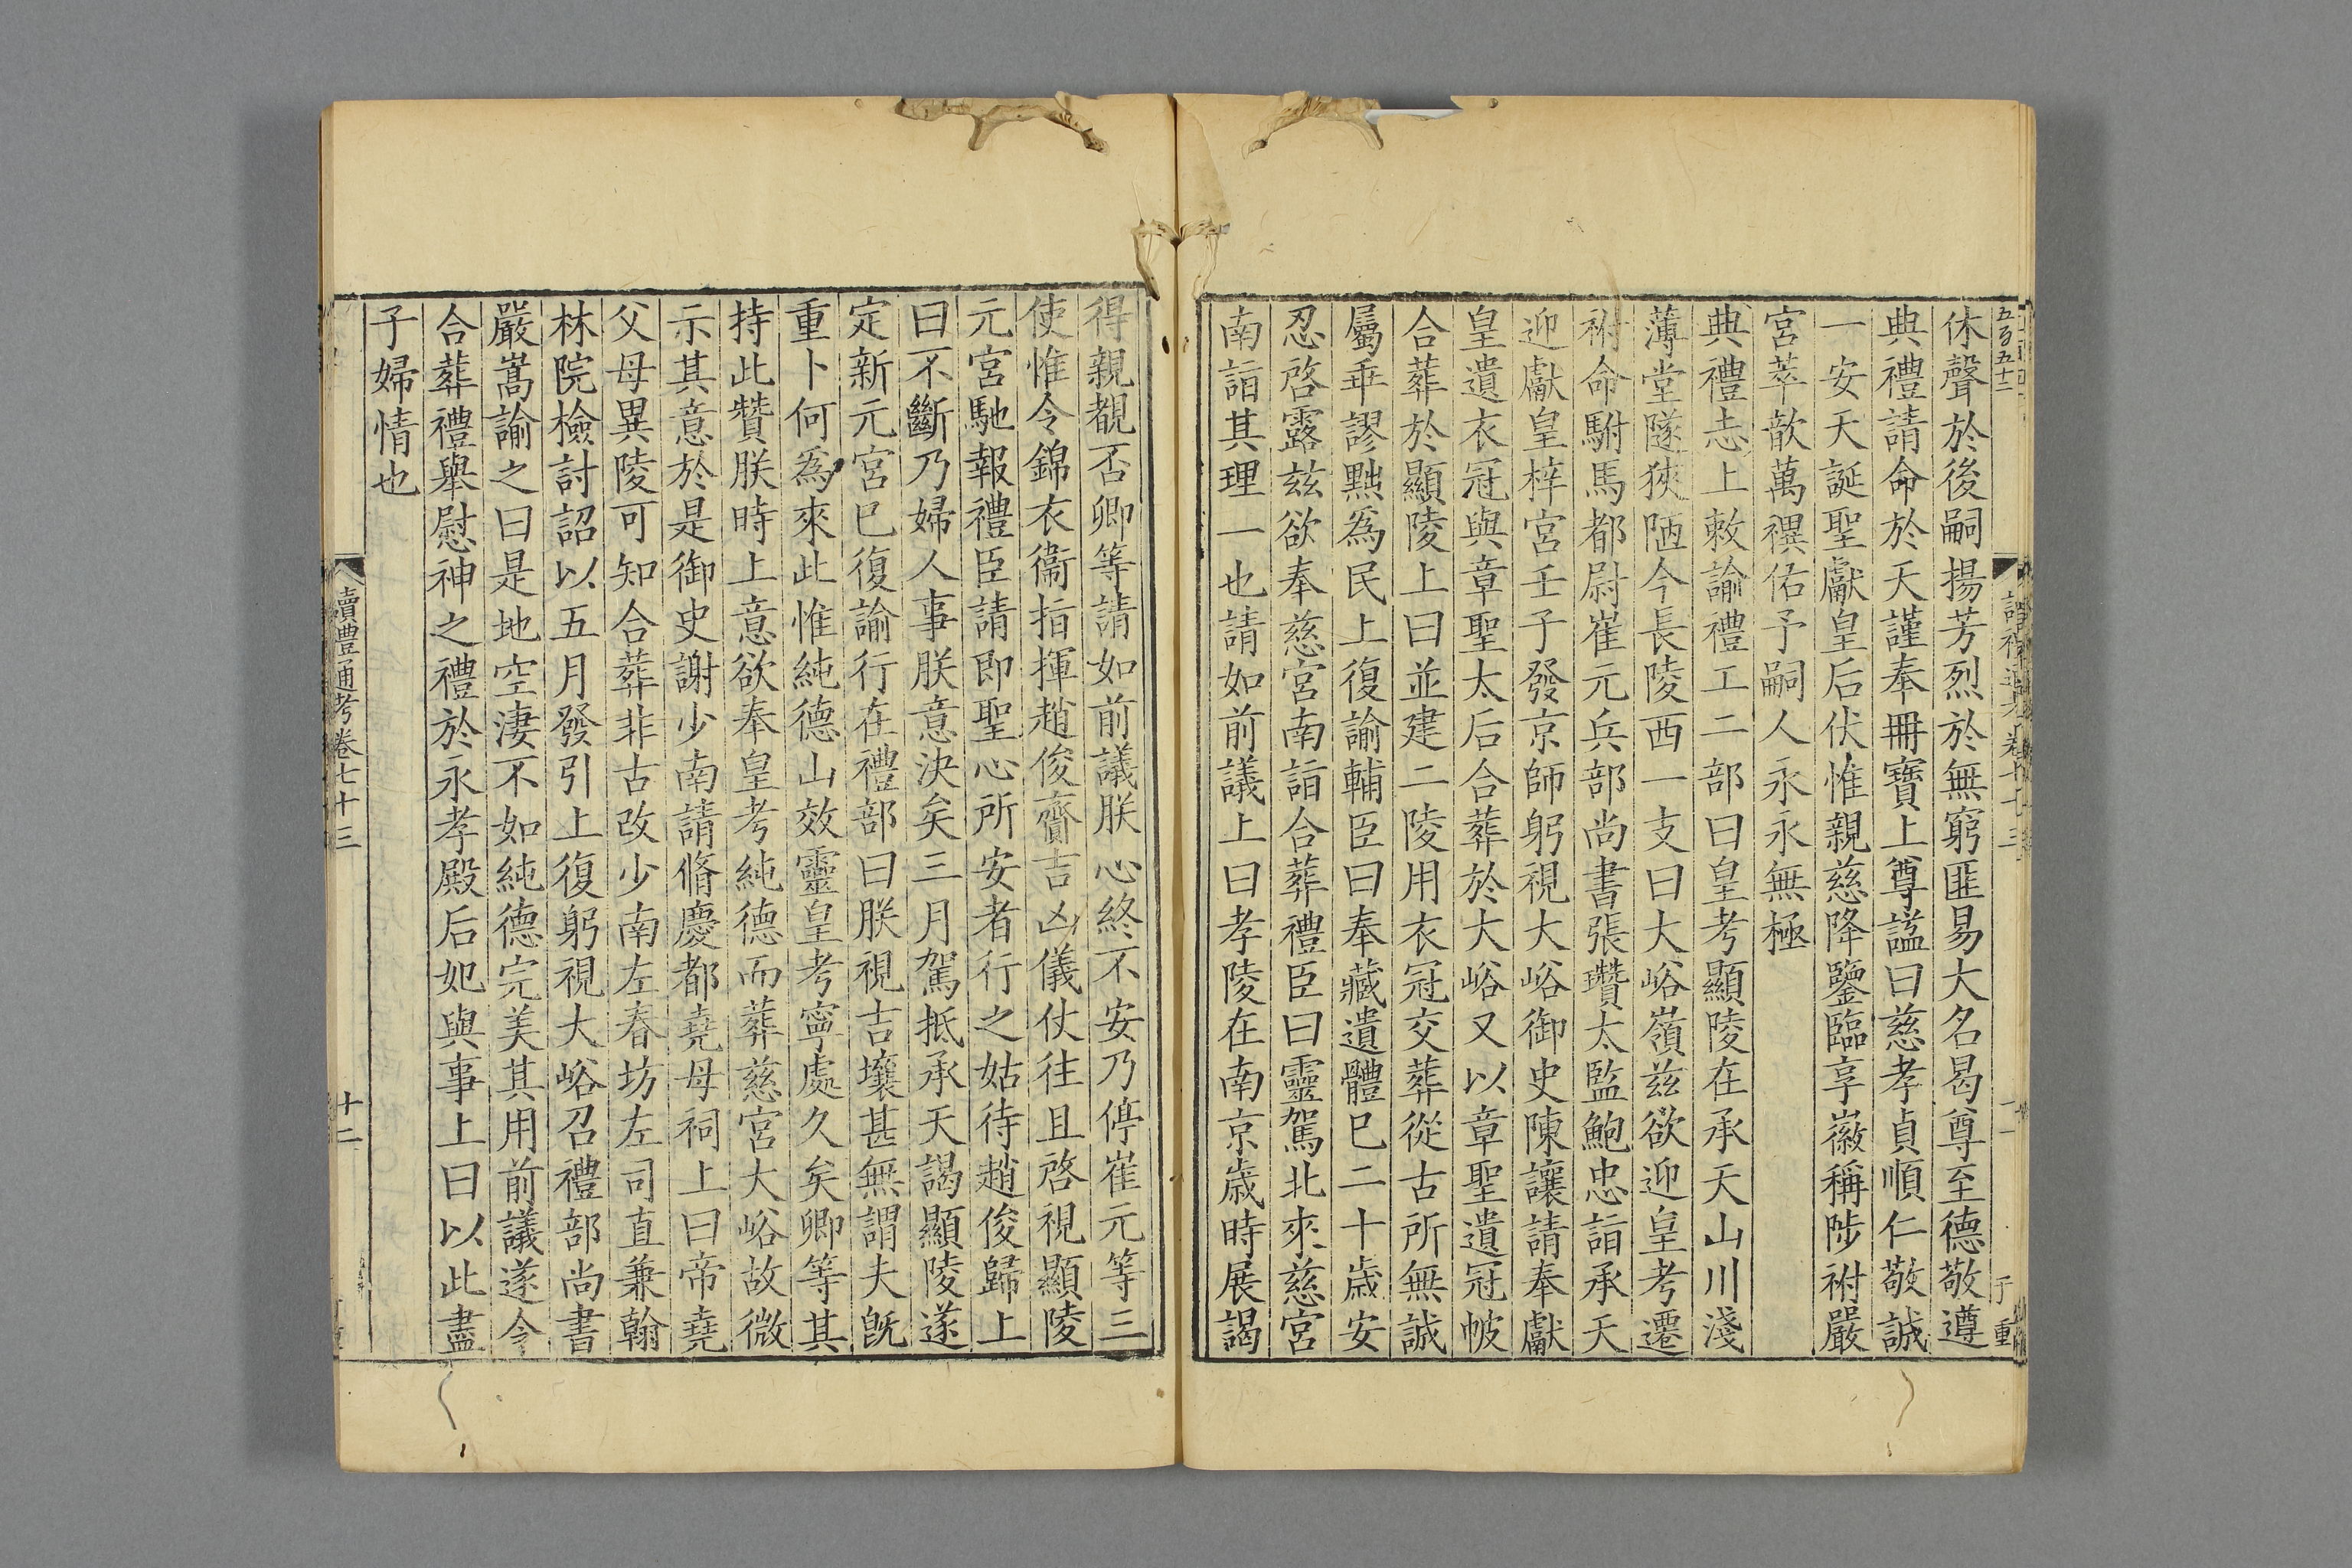 五百五十二
讀禮通考卷七十三
子重
休聲於後嗣揚芳烈於無窮匪易大名曷尊至德敬遵
典禮請命於天謹奉冊寶上尊謚曰慈孝貞順仁敬誠
一安天誕聖獻皇后伏惟親慈降鑒臨享徽稱陟祔嚴
宮萃歆萬禩佑予嗣人永永無極
典禮志上敕諭禮工二部曰皇考顯陵在承天山川淺
薄堂隧狹陋今長陵西一支曰大峪嶺茲欲迎皇考遷
祔命駙馬都尉崔元兵部尚書張瓚太監鮑忠詣承天
迎獻皇梓宮壬子發京師躬視大峪御史陳讓請奉獻
皇遺衣冠與章聖太后合葬於大峪又以章聖遺冠帔
合葬於顯陵上曰並建二陵用衣冠交葬從古所無誠
屬乖謬黜爲民上復諭輔臣曰奉藏遺體已二十歲安
忍啓露兹欲奉慈宮南詣合葬禮臣曰靈駕北來慈宮
南詣其理一也請如前議上曰孝陵在南京歲時展謁
得親覩否卿等請如前議朕心終不安乃停崔元等三
使惟令錦衣衞指揮趙俊齎吉凶儀仗往且啓視顯陵
元宮馳報禮臣請即聖心所安者行之姑待趙俊歸上
曰不斷乃婦人事朕意決矣三月駕抵承天謁顯陵遂
定新元宮已復諭行在禮部曰朕視吉壤甚無謂夫旣
重卜何爲來此惟純德山效靈皇考寧處久矣卿等其
持此贊朕時上意欲奉皇考純德而葬慈宮大峪故微
示其意於是御史謝少南請脩慶都堯母祠上曰帝堯
父母異陵可知合葬非古改少南左春坊左司直兼翰
林院檢討詔以五月發引上復躬視大峪召禮部尚書
嚴嵩諭之曰是地空淒不如純德完美其用前議遂令
合葬禮舉慰神之禮於永孝殿后妃與事上曰以此盡
子婦情也
讀禮通考卷七十三
十二